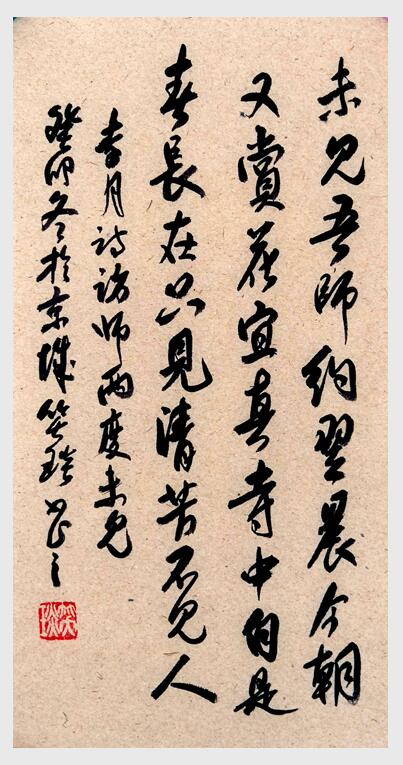 未见吾師约翌晨今朝
又賞花宜真寺中自是
春長在只見清苦不见人
李月诗访师两度未见
癸卯冬於京城笑琰书之